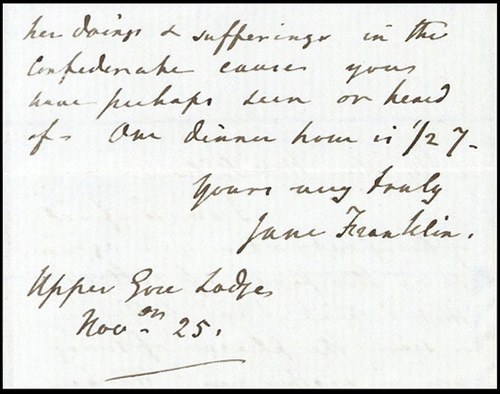 her doings & sufferings in the
Confederate cause you
have perhaps seen or heard
of - Our dinner hour is 1/2 7 -
Yours very truly
Jane Franklin.
Upper Gore Lodge
Nov. 25.